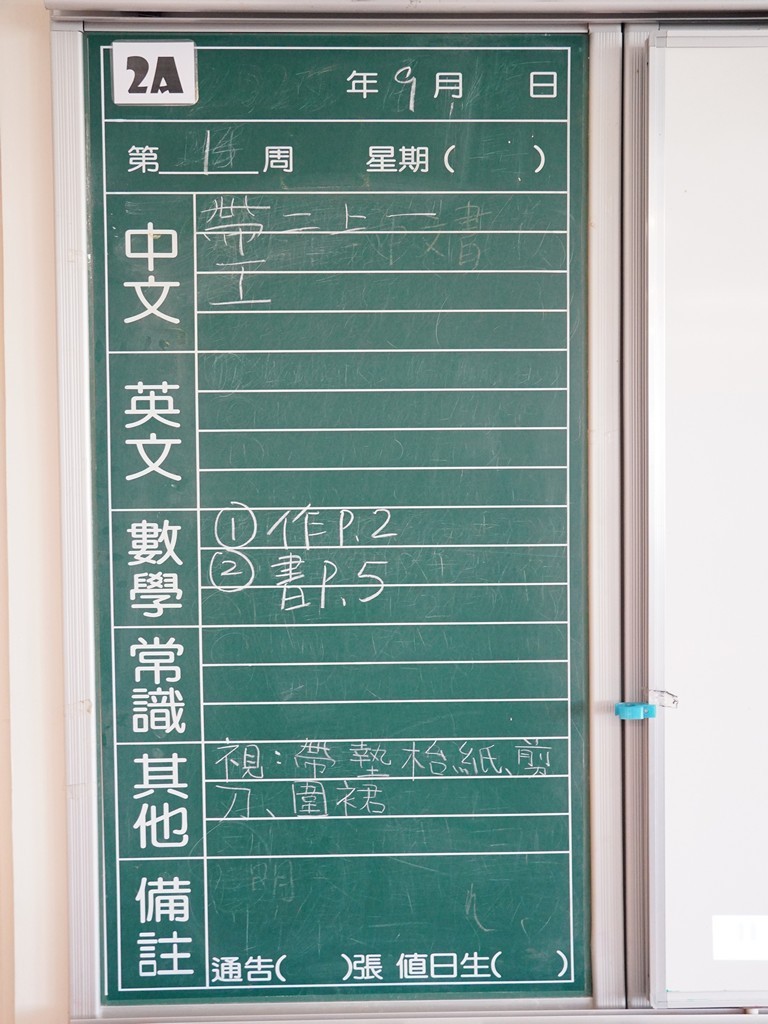 2A
年9月 日
第1周 星期( )
中文
帶二上一
工
英文
數學
① 作P.2
② 書P.5
常識
其他
視：帶墊枱紙、剪
刀、圍裙
備註
通告( )張 值日生( )